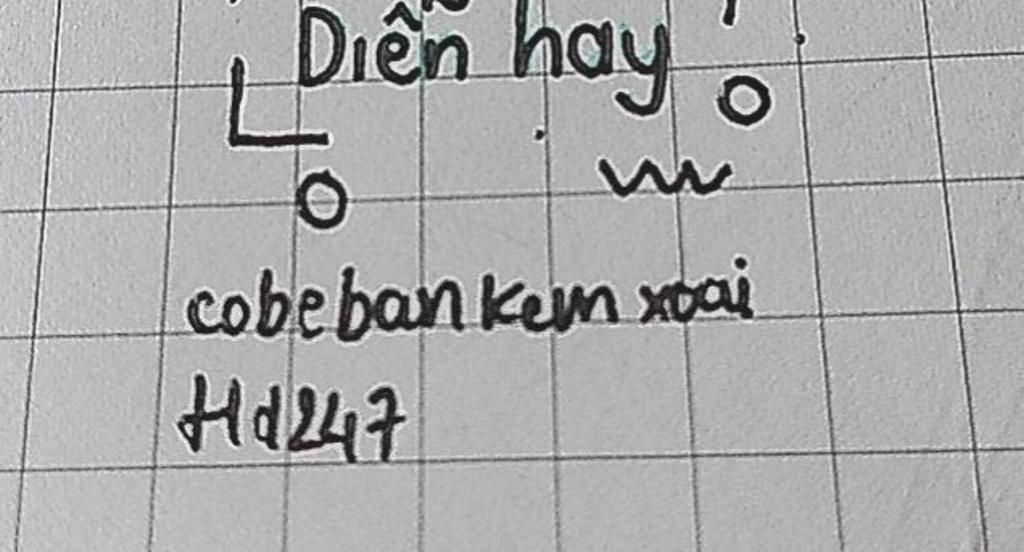 Diễn hay
cobebankemxoai
Hd247